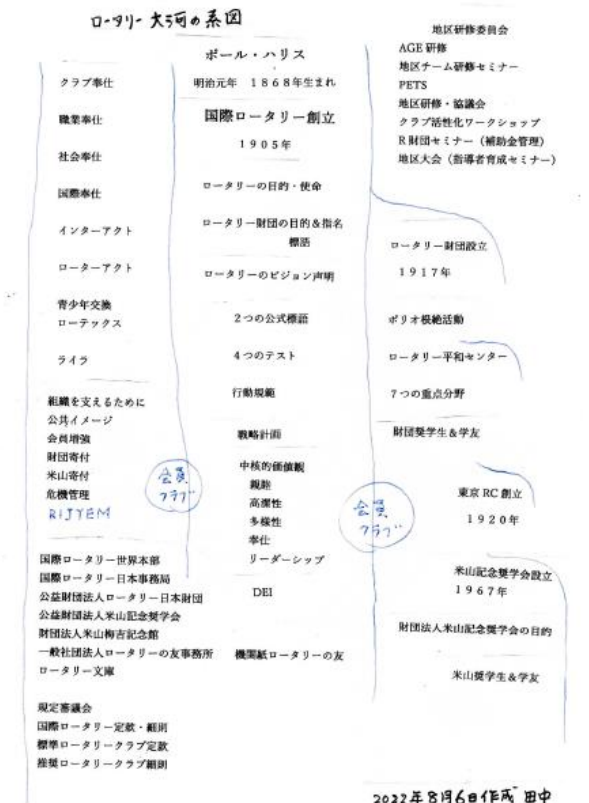 ロータリー 大河の系図
クラブ奉仕
職業奉仕
社会奉仕
国際奉仕
インターアクト
ローターアクト
青少年交換
ローテックス
ライラ
組織を支えるために
公共イメージ
会員増強
財団寄付
米山寄付
危機管理
RIJYEM
会員
クラブ
国際ロータリー世界本部
国際ロータリー日本事務局
公益財団法人ロータリー日本財団
公益財団法人米山記念奨学会
財団法人米山梅吉記念館
一般社団法人ロータリーの友事務所
ロータリー文庫
規定審議会
国際ロータリー定款・細則
標準ロータリークラブ定款
推奨ロータリークラブ細則
ポール・ハリス
明治元年 1868年生まれ
国際ロータリー創立
1905年
ロータリーの目的・使命
ロータリー財団の目的&指名
標語
ロータリーのビジョン声明
2つの公式標語
4つのテスト
行動規範
戦略計画
中核的価値観
親睦
高潔性
多様性
奉仕
リーダーシップ
DEI
機関紙ロータリーの友
地区研修委員会
AGE 研修
地区チーム研修セミナー
PETS
地区研修・協議会
クラブ活性化ワークショップ
R 財団セミナー（補助金管理）
地区大会（指導者育成セミナー）
ロータリー財団設立
1917年
ポリオ根絶活動
ロータリー平和センター
7つの重点分野
財団奨学生&学友
会員
クラブ
東京 RC 創立
1920年
米山記念奨学会設立
1967年
財団法人米山記念奨学会の目的
米山奨学生&学友
2022年8月6日作成 田中